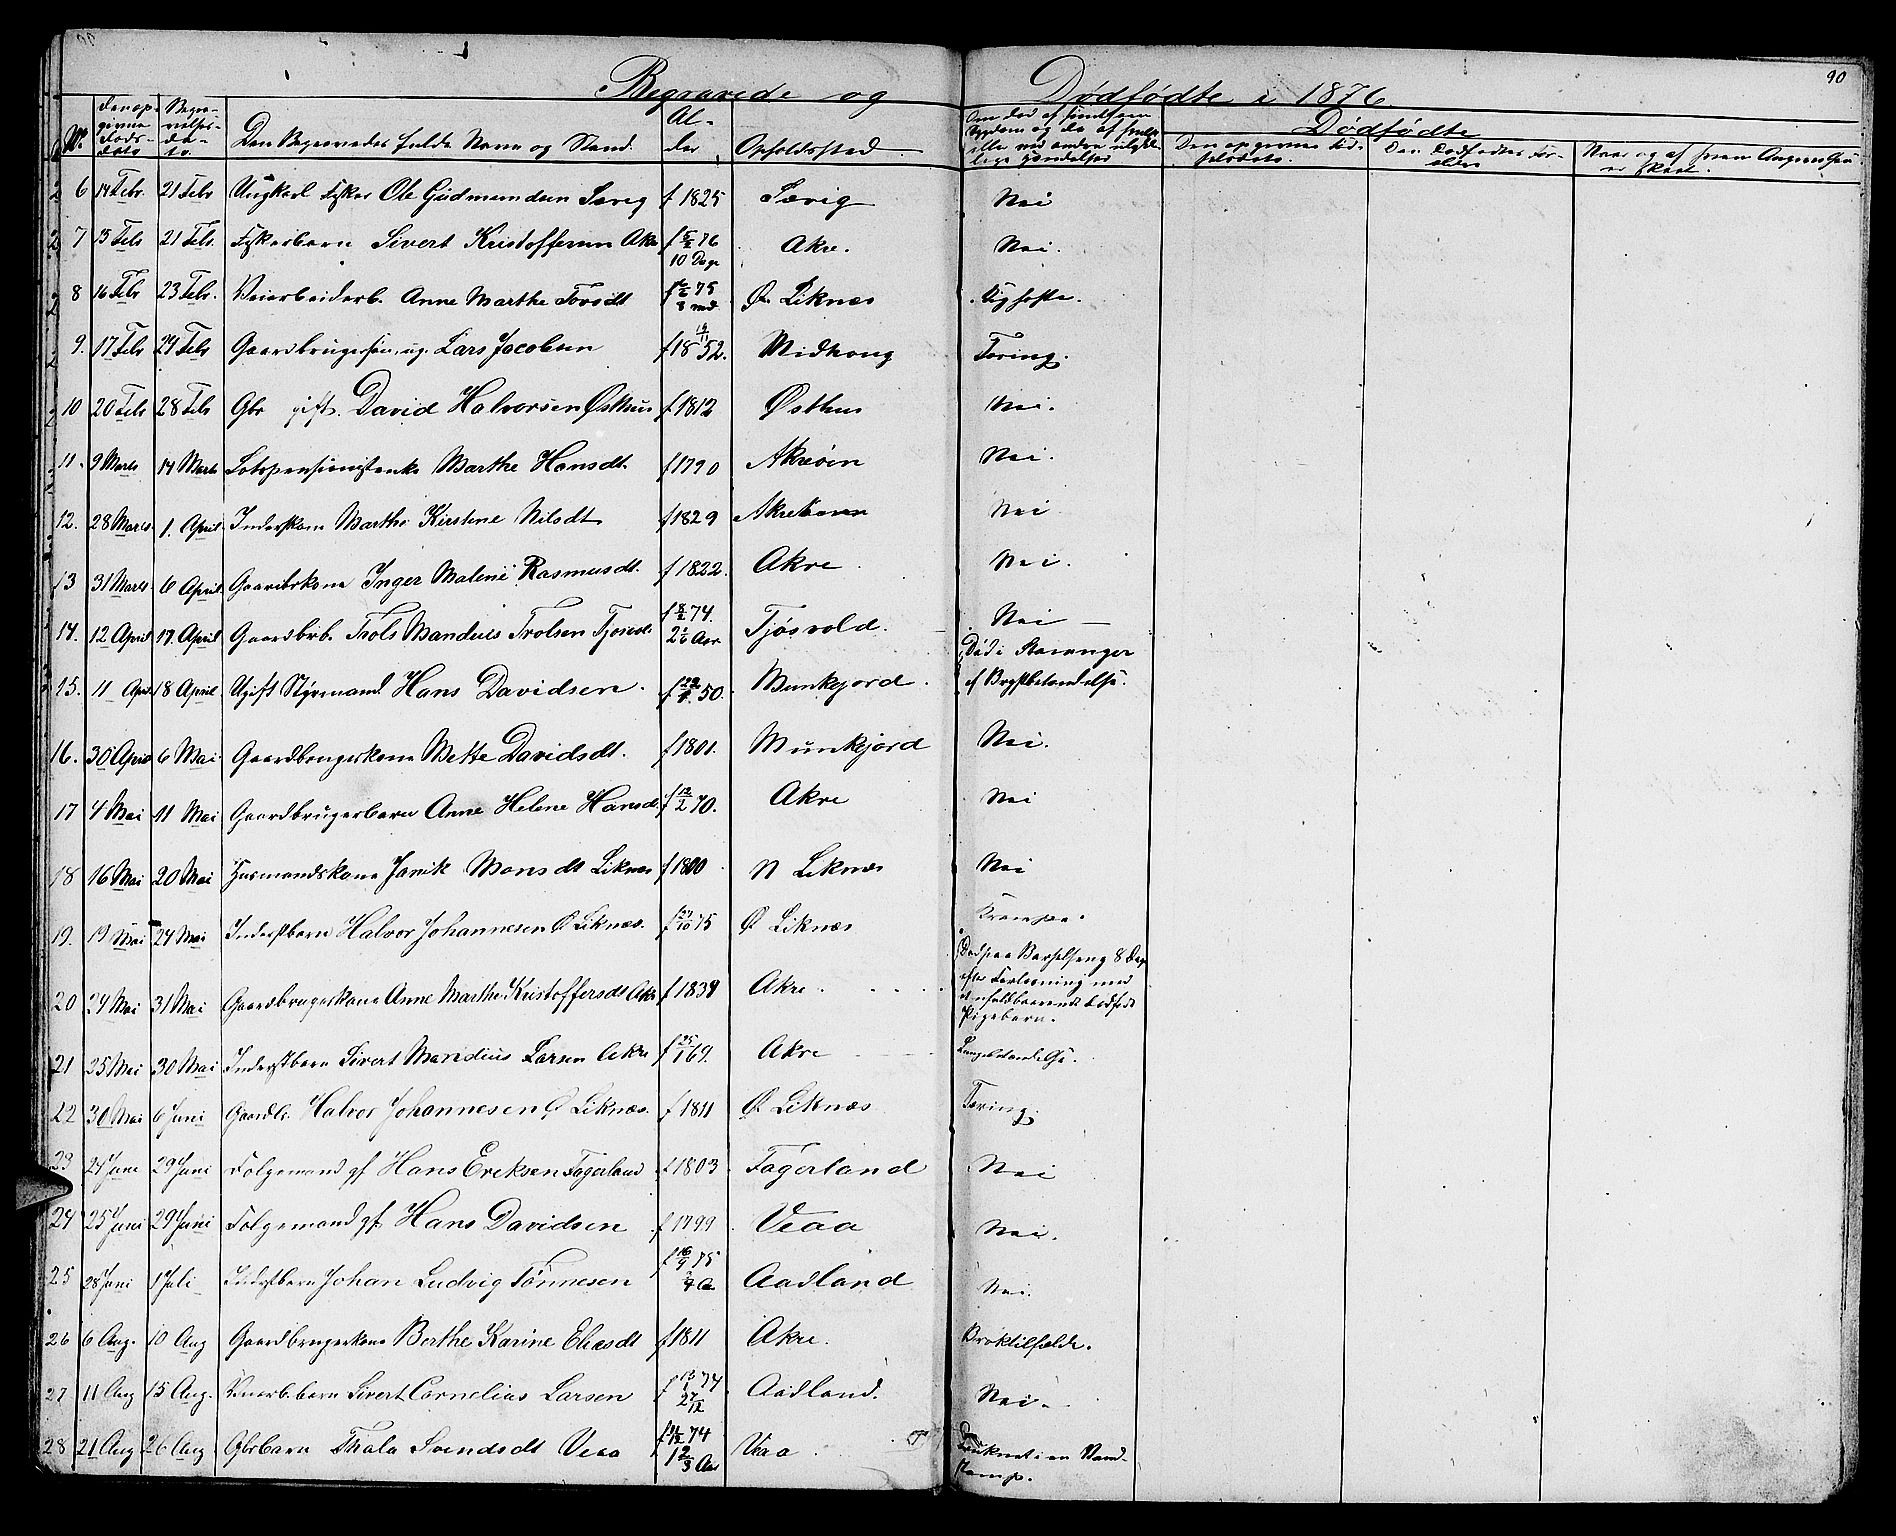 Begravede og Dødfødte i 1876.
90
No
Den opgivne Døds-dato
Begravelses-dato
Den Begravedes fulde Navn og Stand.
Alder
Opholdssted
Dødfødte
Den opgivne
Den Dødfødtes Forældre
Naar og af hvem Anmeldelsen er skeet.
6 14 Febr. 21 Febr Ungkarl Fisker Ole Gudmundsen Sævig f 1825 Sævig Nei
7 15 Febr 21 Feb. Fiskerbarn Sivert Kristoffersen Akre f 5/2 76 10 Dage Akre. Nei.
8 16 Febr 23 Febr. Veiarbeiderb. Anne Marthe 75 Ø. Liknæs Kighoste.
9. 17 Febr 24 Febr Gaardbrugersøn, ug. Lars Jacobsen f 18 19/11 52. Midhoug Tæring.
10 20 Febr 28 Febr Gbr gift. David Halvorsen Østhus f 1812 Østhus Nei.
11. 9 Marts 14 Marts Marthe Hansdt. f 1790 Akreøen Nei.
12. 28 Marts 1. April Inderstkone Marthe Kirstine Nilsdt f 1829 Nei
13 31 Marts 6 April Gaardbrkone Inger Malene Rasmusdt. f 1822. Akre Nei.
14. 12 April 17. April Gaardbrb. Trols Mandius Trolsen f 8/2 74. 2 1/6 Aar Tjøsvold. Nei
15. 11 April 18 April Ugift Styrmand Hans Davidsen. 50. Munkejord. Død i Stavanger af Brystbetændelse.
16. 30 April 6 Mai Gaardbrugerkone Mette Davidsdt. f 1801. Munkejord Nei.
17 4 Mai 11 Mai Gaardbrugerbarn Anne Helene Hansd. f 12/2 70. Akre Nei
18 16 Mai 20 Mai Husmandskone Janik Monsdt Liknæs f 1800 N Liknæs Nei
19. 19 Mai 24 Mai Inderstbarn Halvor Johannesen Ø Liknæs. 75 Ø Liknæs Krampe.
20 24 Mai 31 Mai Gaardbrugerkone Anne Marthe Kristoffersdt Akre f 1834 Akre. Død paa Barselseng 8 Dage efter Forløsning med dødfødt Pigebarn.
21 25 Mai 30 Mai Inderstbarn Sivert Mandius Larsen Akre f 25/1 69. Akre Lungebetændelse.
22 30 Mai 6 Juni Gaardbr. Halvor Johannesen Ø Liknæs. f 1811 Ø Liknæs Tæring.
23 24 Juni 29 Juni Folgemand gf Hans Eriksen Fagerland f 1803 Fagerland Nei
24 25 Juni 29 Juni Folgemand gf Hans Davidsen f 1799 Veaa Nei.
25 28 Juni 1 Juli Inderstbarn Johan Ludvig Tønnesen f 16/9 75 3/4 A. Aadland Nei.
26 6 Aug. 10 Aug Gaardbrugerkone Berthe Karine Eliasdt f 1811 Akre. Broktilfælde.
27 11 Aug 15 Aug. Veiarb.barn Sivert Cornelius Larsen 74 Aadland. Nei.
28 21 Aug 26 Aug Gbrbarn Thala Svendsdt Veaa 74 1 2/3 Aar Veaa Druknet i en Vanddamp.